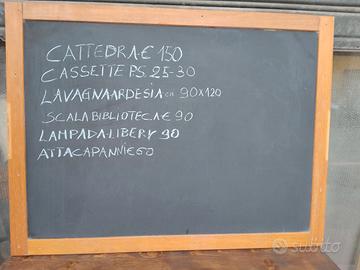 CATTEDRA·€ 150
CASSETTE P.S. 25-30
LAVAGNA ARDESIA cm 90x120
SCALA BIBLIOTECA € 90
LAMPADA·LIBERY 90
ATTACAPANNI €60
subito